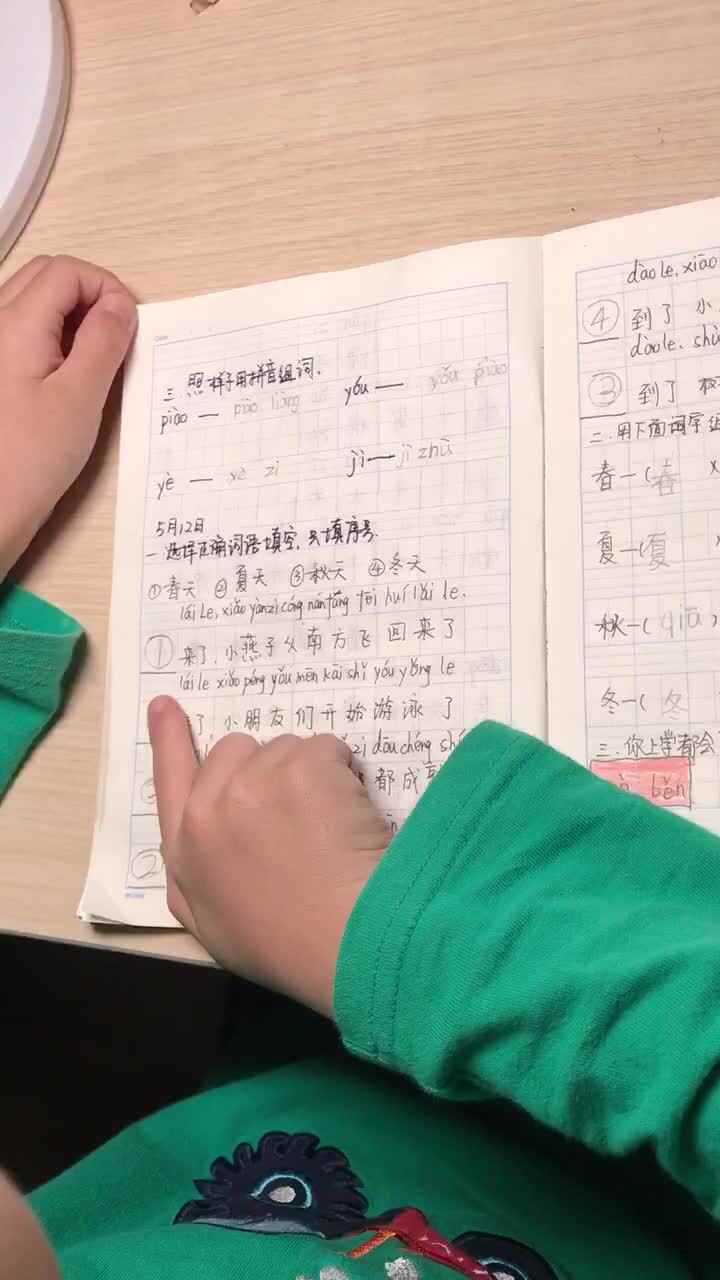 三.照样子用拼音组词.
piào — piào liàng yóu — yóu piào
yè — yè zi jì — jì zhù
5月12日
一.选择正确词语填空,只填序号.
①春天 ②夏天 ③秋天 ④冬天
lái le, xiǎo yàn zi cóng nán fāng fēi huí lái le.
① 来了,小燕子从南方飞回来了
lái le xiǎo péng yǒu mēn kāi shǐ yóu yǒng le
了 小朋友们开始游泳了
zi dōu chéng
③ 都成
②
dào le, xiǎo
④ 到了 小
dào le, shù
③ 到了
二.用下面词字组
春—(春
夏—(夏
秋—(qiū)
冬—(冬
三.你上学都会
běn